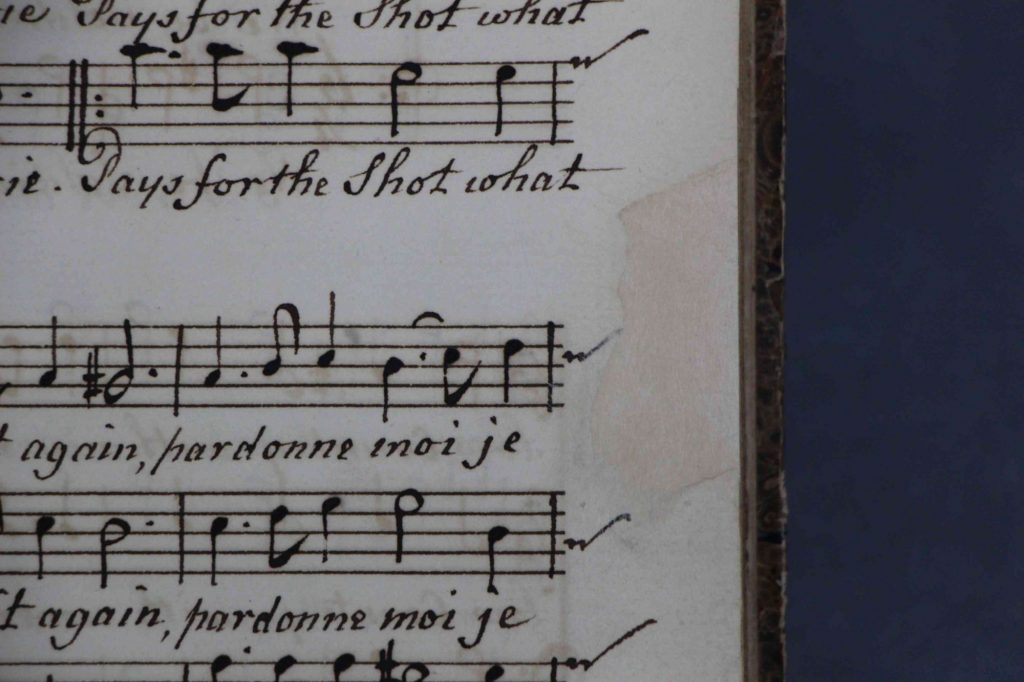 Pays for the Shot what
ie. Pays for the Shot what
again, pardonne moi je
t again, pardonne moi je